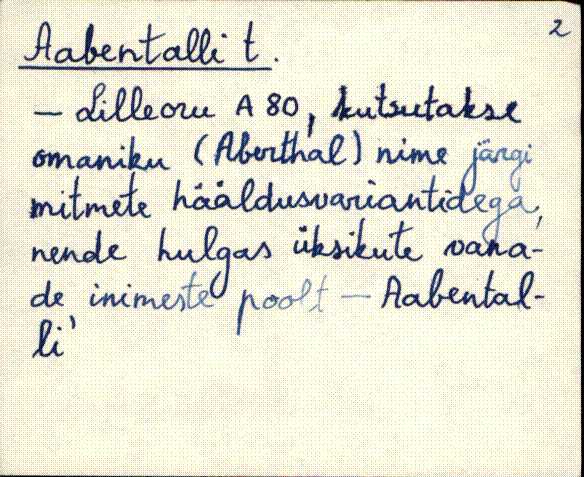 2
Aabentalli t.
– Lilleoru A 80, kutsutakse
omaniku (Aberthal) nime järgi
mitmete hääldusvariantidega,
nende hulgas üksikute vana-
de inimeste poolt – Aabental-
li'